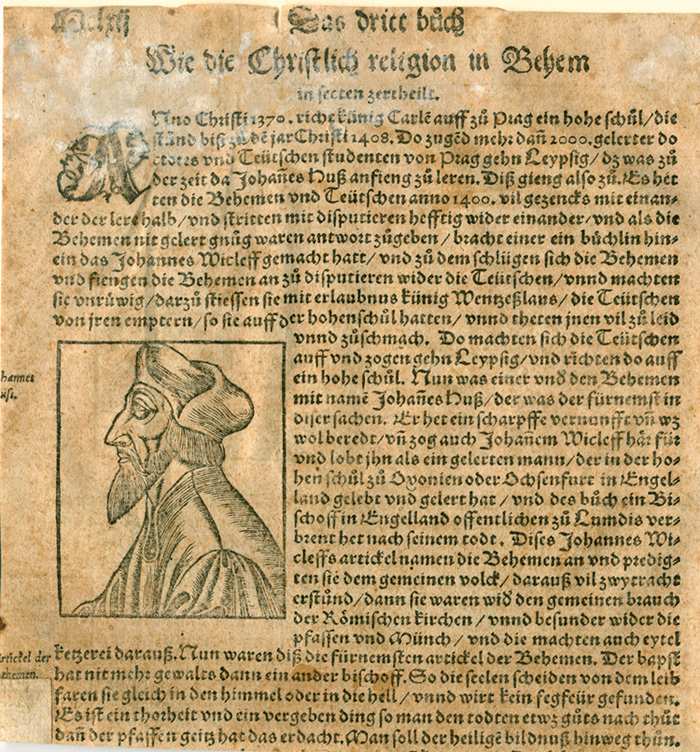 Das dritt bůch
Wie die Christlich religion in Behem
in secten zertheilt.
ANno Christi 1370. richt künig Carle auff zů Prag ein hohe schůl/die
stůnd biß zu dẽ jar Christi 1408. Do zugẽd mehr dañ 2000. gelerter do
ctores vnd Teütschen studenten von Prag gehn Leypsig/ dz was zů
der zeit da Johañes Huß anfieng zů leren. Diß gieng also zů. Es het
ten die Behemen vnd Teütschen anno 1400. vil gezencks mit einan-
der der lere halb/vnd stritten mit disputieren hefftig wider einander/vnd als die
Behemen nit gelert gnůg waren antwort zůgeben/ bracht einer ein büchlin hin-
ein das Johannes Wicleff gemacht hatt/ vnd zů dem schlůgen sich die Behemen
vnd fiengen die Behemen an zů disputieren wider die Teütschen/vnnd machten
sie vnrüwig/darzů stiessen sie mit erlaubnus künig Wentzeßlaus/ die Teütschen
von jren emptern/ so sie auff der hohenschůl hatten/ vnnd theten jnen vil zů leid
vnnd zůschmach. Do machten sich die Teütschen
auff vnd zogen gehn Leypsig/vnd richten do auff
ein hohe schůl. Nun was einer vnd den Behemen
mit namẽ Johañes Huß/der was der fürnemst in
diser sachen. Er het ein scharpffe vernunfft vñ wz
wol beredt/ vñ zog auch Johañem Wicleff här für
vnd lobt jhn als ein gelerten mann/der in der ho-
hen schůl zů Oxonien oder Ochsenfurt in Engel-
land gelebt vnd gelert hat/ vnd des bůch ein Bi-
schoff in Engelland offentlichen zů Lumdis ver-
brent het nach seinem todt. Dises Johannes Wi-
cleffs artickel namen die Behemen an vnd predig-
ten sie dem gemeinen volck/ darauß vil zwytracht
erstůnd/dann sie waren wid den gemeinen brauch
der Römischen kirchen/ vnnd besunder wider die
pfaffen vnd Münch/ vnd die machten auch eytel
ketzerei darauß. Nun waren diß die fürnemsten artickel der Behemen. Der bapst
hat nit mehr gewalts dann ein ander bischoff. So die seelen scheiden von dem leib
faren sie gleich in den himmel oder in die hell/ vnnd wirt kein fegfeür gefunden.
Es ist ein thorheit vnd ein vergeben ding so man den todten etwz gůts nach thůt
dañ der pfaffen geitz hat das erdacht. Man soll der heiligẽ bildnuß hinweg thůn.
hannes
uß.
rtickel der
ehemen.